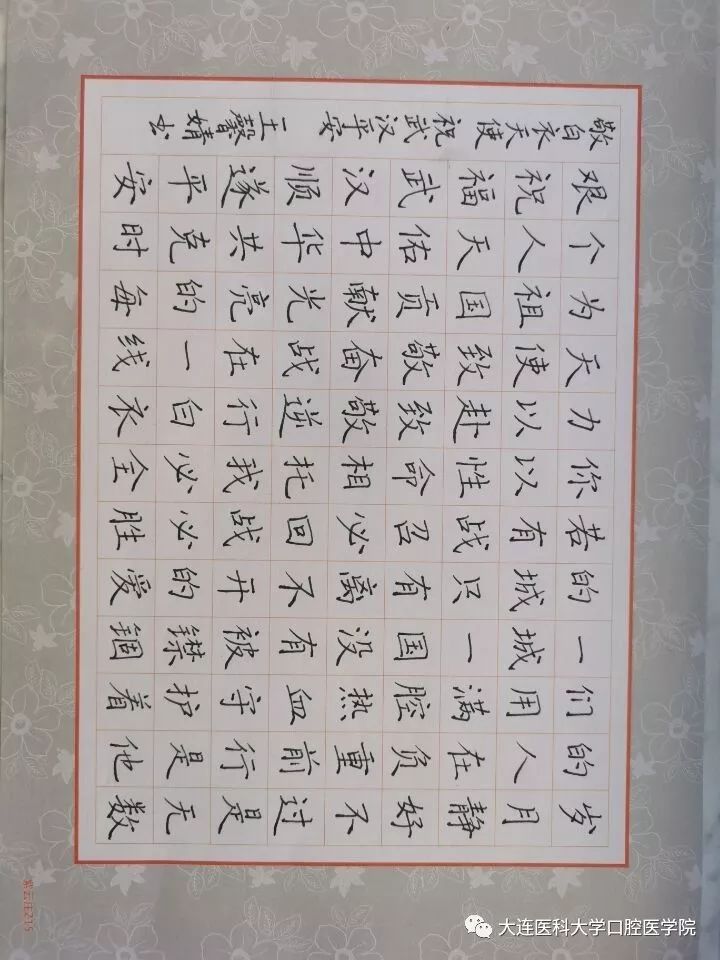 岁月静好不过是无数
的人在负重前行是他
们用满腔热血守护着
一城一国没有被锢
的城只有离不开的爱
若有战召必回战必胜
你以性命相托我必全
力以赴致敬逆行白衣
天使致敬奋战在一线
为祖国贡献光亮的每
个人天佑中华共克时
艰祝福武汉顺遂平安
敬白衣天使祝武汉平安 王馨婧书
大连医科大学口腔医学院